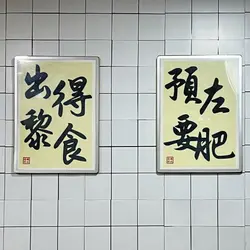 出得
黎食
預左
要肥